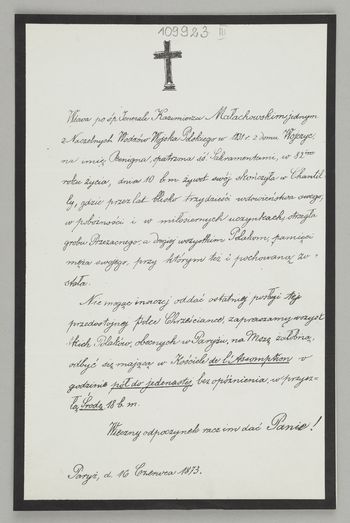 109923 III
Wdowa po śp. Jenerale Kazimierzu Małachowskim, jednym
z Naczelnych Wodzów Wojska Polskiego w 1831 r. z domu Wojzyc,
na imię Benigna, opatrzona śś. Sakramentami, w 82
roku życia, dnia 10 b m. żywot swój skończyła w Chantil-
ly, gdzie przez lat blisko trzydzieści wdowieństwa swego,
w pobożności i w miłosiernych uczynkach, strzegła
grobu Przezacnego, a drogiej wszystkim Polakom, pamięci
męża swojego, przy którym też i pochowaną zo-
stała.
Nie mogąc inaczej oddać ostatniej posługi tej
przedostojnej Polce Chrześciance, zapraszamy wszyst
kich Polaków, obecnych w Paryżu, na Mszę żałobną,
odbyć się mającą w Kościele de l'Assomption o
godzinie pół do jedenastej, bez opóźnienia, w przysz-
łą Środę 18 b m.
Wieczny odpoczynek racz im dać Panie!
Paryż, d. 16 Czerwca 1873.